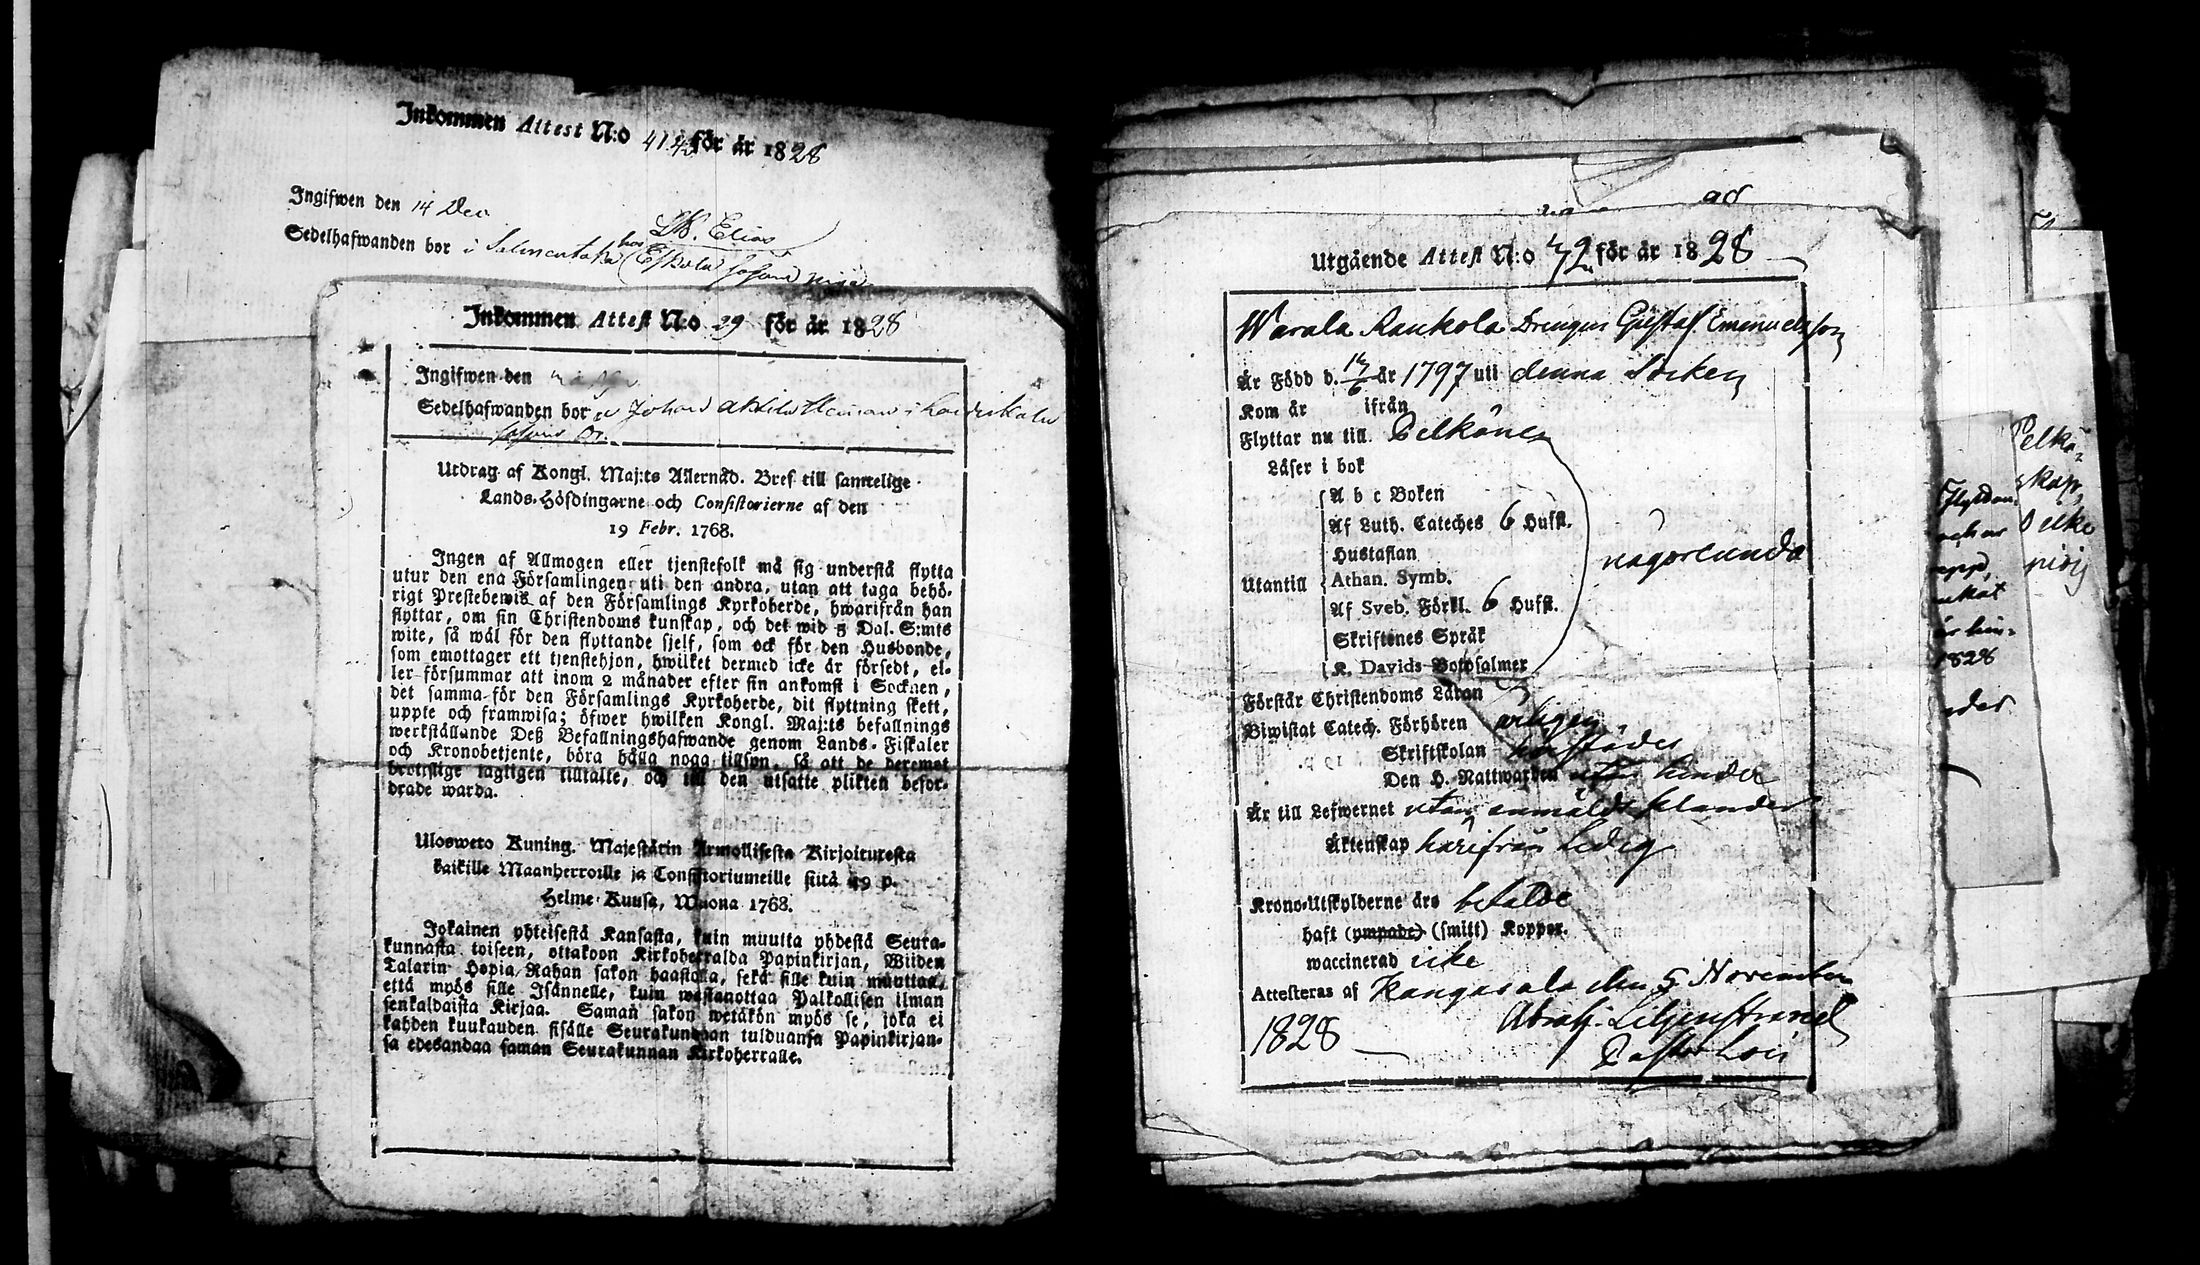 Inkommen Attest N:o för år 1828
Ingifwen den 14 Dec.
Elias
Sedelhafwanden bor i hos
Inkommen Attest N:o 29 för år 1828
Ingifwen den
Sedelhafwanden bor Johan
Utdrag af Kongl. Maj:ts Allernåd. Bref till samtelige
Lands-Höfdingarne och Consistorierne af den
19 Febr. 1768.
Ingen af Allmogen eller tjenstefolk må sig understå flytta
utur den ena Församlingen uti den andra, utan att taga behö-
rigt Prestebewis af den Församlings Kyrkoherde, hwarifrån han
flyttar, om sin Christendoms kunskap, och det wid 5 Dal. S:mts
wite, så wäl för den flyttande sjelf, som ock för den Husbonde,
som emottager ett tjenstehjon, hwilket dermed icke är försedt, el-
ler försummar att inom 2 månader efter sin ankomst i Socknen,
det samma för den Församlings Kyrkoherde, dit flyttning skett,
uppte och framwisa; öfwer hwilken Kongl. Maj:ts befallnings
werkställande Deß Befallningshafwande genom Lands-Fiskaler
och Kronobetjente, böra hålla noga tillsyn, så att de deremot
brottslige lagligen tilltalte, och till den utsatte plikten befor-
drade warda.
Ulosweto Kuning. Majestätin Armollisesta Kirjoituxesta
kaikille Maanherroille ja Consistoriumeille siitä 19 p.
Helme-Kuusa, Wuona 1768.
Jokainen yhteisestä Kansasta, kuin muutta yhdestä Seura-
kunnasta toiseen, ottakoon Kirkoherralda Papinkirjan, Wiiden
Talarin Hopia Rahan sakon haastolla, sekä sille kuin muuttaa,
että myös sille Isännelle, kuin wastanottaa Palkollisen ilman
senkaldaista Kirjaa. Saman sakon wetäkön myös se, joka ei
kahden kuukauden sisälle Seurakundaan tulduansa Papinkirjan-
sa edesandaa saman Seurakunnan Kirkoherralle.
98
Utgående Attest N:o 72 för år 1828
Warala Raukola Drengen Gustaf Emanuelsson
Är Född d. år 1797 uti denna Socken
Kom år ifrån
Flyttar nu till Pelkäne
Läser i bok
A b c Boken
Af Luth. Cateches 6 Hufst.
Hustaflan
någorlunda
Utantill Athan. Symb.
Af Sveb. Förkl. 6 Hufst.
Skriftenes Språk
K. Davids Botpsalmer
Förstår Christendoms Läran
Biwistat Catech. Förhören årligen
Skriftskolan
Den H. Nattwarden utan hinder
Är till Lefwernet utan anmäldt klander
Äktenskap härifrån ledig
Krono-Utskylderne äro betalde
haft (ympade) (smitt) Koppor.
waccinerad icke
Attesteras af Kangasala den 5 November
1828
Abrah. Liljenstrand
Pastor Loci
Pelkä-
1828